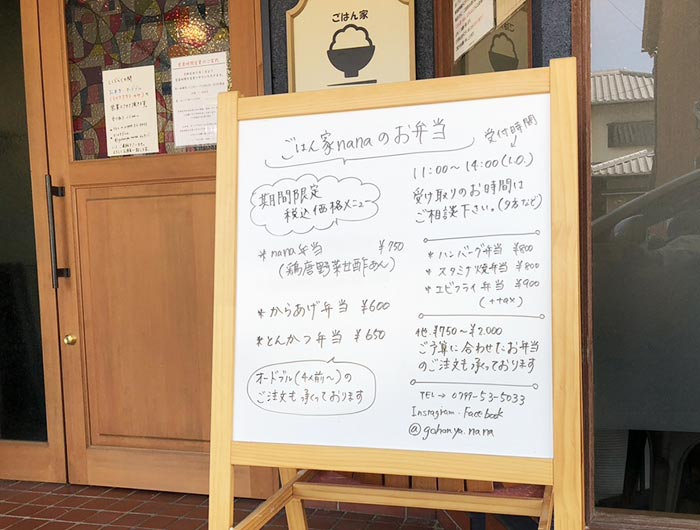 ごはん家
ごはん家nanaのお弁当
期間限定
税込価格メニュー
* nana弁当 ¥750
(鶏唐野菜甘酢あん)
* からあげ弁当 ¥600
* とんかつ弁当 ¥650
オードブル(4人前〜)の
ご注文も承っております
受付時間
11:00〜14:00(L.O.)
受け取りのお時間は
ご相談下さい。(夕方など)
* ハンバーグ弁当 ¥800
* スタミナ焼弁当 ¥800
* エビフライ弁当 ¥900
(+tax)
他、¥750〜¥2,000
ご予算に合わせたお弁当
のご注文も承っております
TEL→ 0799-53-5033
Instagram・Facebook
@gohanya.nana